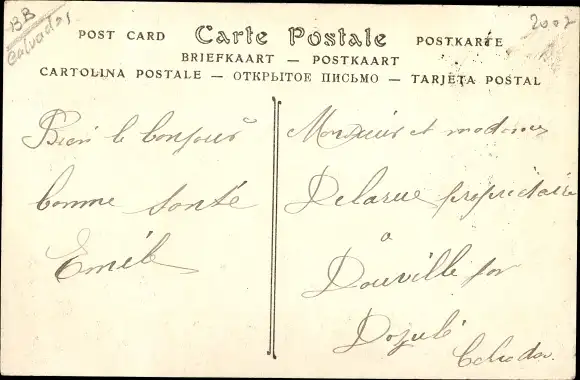 BB
Calvados
2002
POST CARD Carte Postale POSTKARTE
BRIEFKAART — POSTKAART
CARTOLINA POSTALE — ОТКРЫТОЕ ПИСЬМО — TARJETA POSTAL
Bien le bonjour
bonne santé
Emile
Monsieur et madame
Delarue propriétaire
a
Douville par
Dozulé
Calvados.